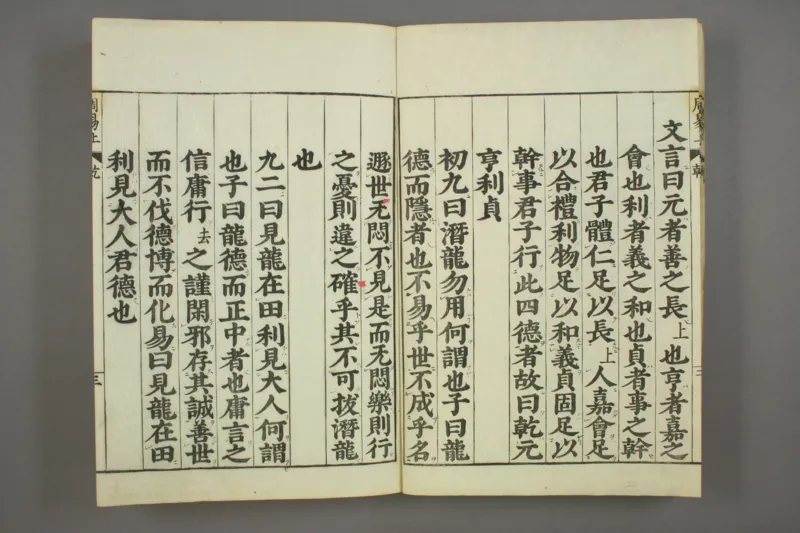 文言曰元者善之長上也亨者嘉之
會也利者義之和也貞者事之幹
也君子體仁足以長上人嘉會足
以合禮利物足以和義貞固足以
幹事君子行此四德者故曰乾元
亨利貞
初九曰潛龍勿用何謂也子曰龍
德而隱者也不易乎世不成乎名
遯世无悶不見是而无悶樂則行
之憂則違之確乎其不可拔潛龍
也
九二曰見龍在田利見大人何謂
也子曰龍德而正中者也庸言之
信庸行去之謹閑邪存其誠善世
而不伐德博而化易曰見龍在田
利見大人君德也
周易上 乾
三